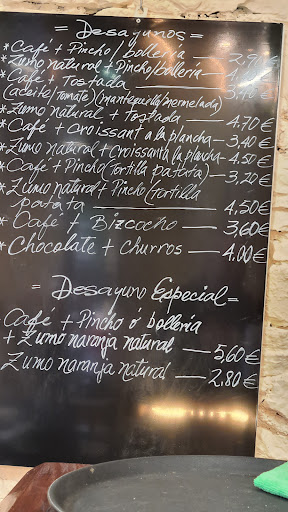 = Desayunos =
* Café + Pincho/bollería — 2,90€
* Zumo natural + Pincho/bollería —
* Café + Tostada — 3,40€
(aceite/tomate)(mantequilla/mermelada)
* Zumo natural + Tostada — 4,70€
* Café + croissant a la plancha — 3,40€
* Zumo natural + Croissant a la plancha — 4,50€
* Café + Pincho (tortilla patata) — 3,20€
* Zumo natural + Pincho (tortilla
patata — 4,50€
* Café + Bizcocho — 3,60€
* Chocolate + Churros — 4,00€
= Desayuno Especial =
Café + Pincho ó bollería
+ Zumo naranja natural — 5,60€
Zumo naranja natural — 2,80€